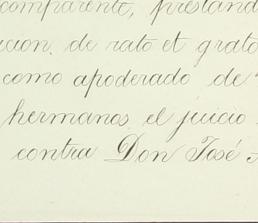 comparente, prestand
ucion de rato et grato
como apoderado de
hermanos el juicio
contra Don José